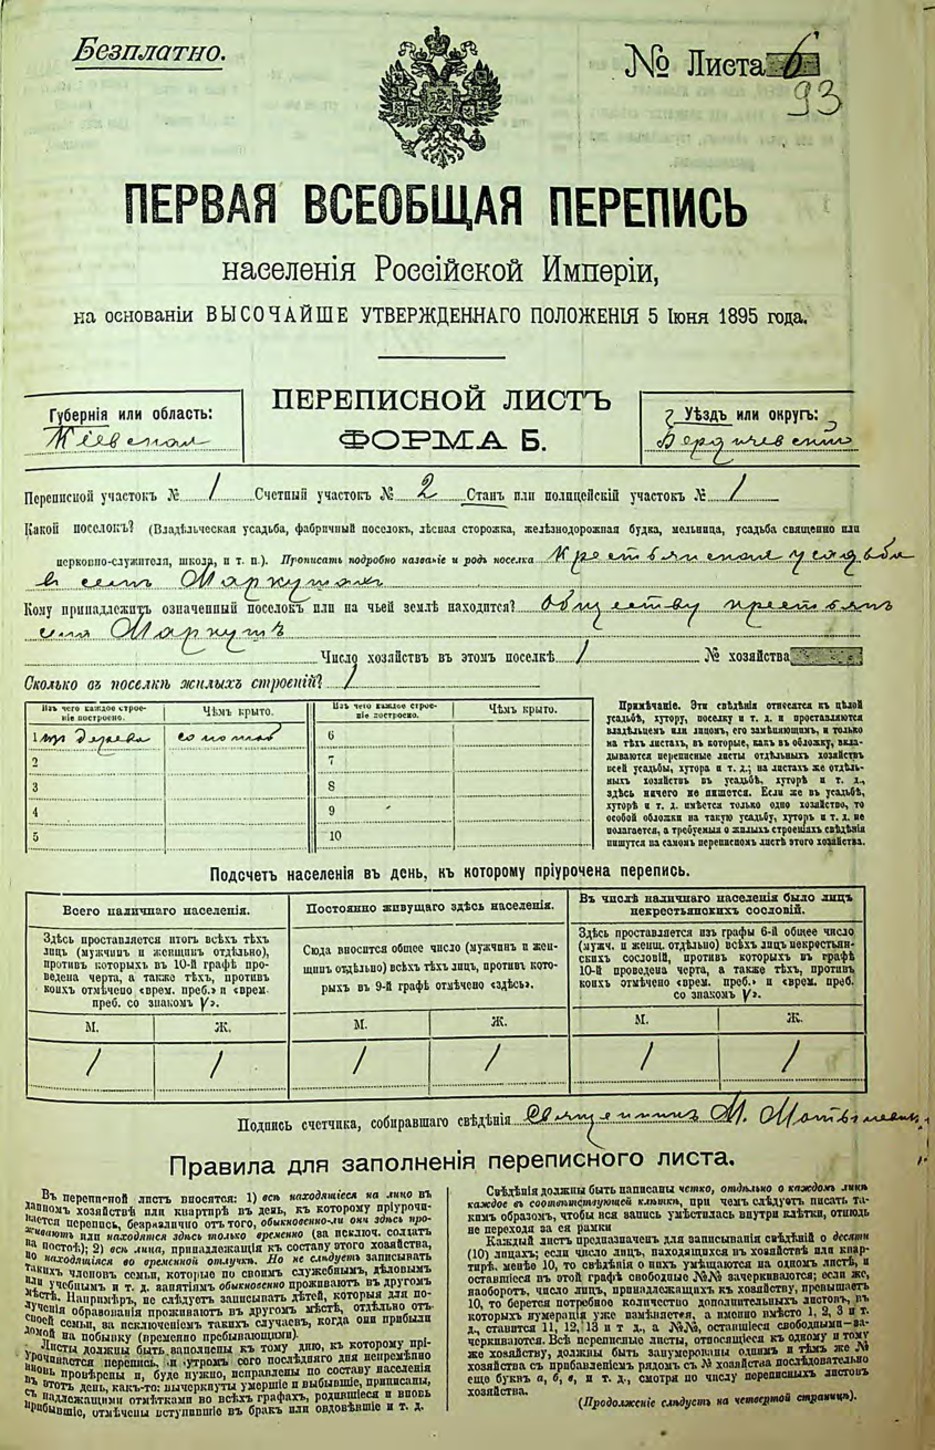 Безплатно.
№ Листа 6
93
ПЕРВАЯ ВСЕОБЩАЯ ПЕРЕПИСЬ
населенія Россійской Имперіи,
на основаніи ВЫСОЧАЙШЕ УТВЕРЖДЕННАГО ПОЛОЖЕНІЯ 5 Іюня 1895 года.
Губернія или область:
Кіевская
ПЕРЕПИСНОЙ ЛИСТЪ
ФОРМА Б.
Уѣздъ или округъ:
Бердичевскій
Переписной участокъ № 1 Счетный участокъ № 2 Станъ или полицейскій участокъ № 1
Какой поселокъ? (Владѣльческая усадьба, фабричный поселокъ, лѣсная сторожка, желѣзнодорожная будка, мельница, усадьба священно или
церковно-служителя, школа, и т. п.). Прописать подробно названіе и родъ поселка Крестьянская усадьба
въ селѣ Маркушахъ
Кому принадлежитъ означенный поселокъ или на чьей землѣ находится? Обществу крестьянъ
села Маркушъ
Число хозяйствъ въ этомъ поселкѣ 1 № хозяйства
Сколько въ поселкѣ жилыхъ строеній? 1
Изъ чего каждое строе-
ніе построено.
Чѣмъ крыто.
Изъ чего каждое строе-
ніе построено.
Чѣмъ крыто.
1 изъ дерева соломою
2
3
4
5
6
7
8
9
10
Примѣчаніе. Эти свѣдѣнія относятся къ цѣлой
усадьбѣ, хутору, поселку и т. д. и проставляются
владѣльцемъ или лицомъ, его замѣняющимъ, и только
на тѣхъ листахъ, въ которые, какъ въ обложку, вкла-
дываются переписные листы отдѣльныхъ хозяйствъ
всей усадьбы, хутора и т. д.; на листахъ же отдѣль-
ныхъ хозяйствъ въ усадьбѣ, хуторѣ и т. д.,
здѣсь ничего не пишется. Если же въ усадьбѣ,
хуторѣ и т. д. имѣется только одно хозяйство, то
особой обложки на такую усадьбу, хуторъ и т. д. не
полагается, а требуемыя о жилыхъ строеніяхъ свѣдѣнія
пишутся на самомъ переписномъ листѣ этого хозяйства.
Подсчетъ населенія въ день, къ которому пріурочена перепись.
Всего наличнаго населенія.
Здѣсь проставляется итогъ всѣхъ тѣхъ
лицъ (мужчинъ и женщинъ отдѣльно),
противъ которыхъ въ 10-й графѣ про-
ведена черта, а также тѣхъ, противъ
коихъ отмѣчено «врем. преб.» и «врем.
преб. со знакомъ V».
М. Ж.
1 1
Постоянно живущаго здѣсь населенія.
Сюда вносится общее число (мужчинъ и жен-
щинъ отдѣльно) всѣхъ тѣхъ лицъ, противъ кото-
рыхъ въ 9-й графѣ отмѣчено «здѣсь».
М. Ж.
1 1
Въ числѣ наличнаго населенія было лицъ
некрестьянскихъ сословій.
Здѣсь проставляется изъ графы 6-й общее число
(мужч. и женщ. отдѣльно) всѣхъ лицъ некрестьян-
скихъ сословій, противъ которыхъ въ графѣ
10-й проведена черта, а также тѣхъ, противъ
коихъ отмѣчено «врем. преб.» и «врем. преб.
со знакомъ V».
М. Ж.
1 1
Подпись счетчика, собиравшаго свѣдѣнія Священникъ М.
Правила для заполненія переписного листа.
Въ переписной листъ вносятся: 1) всѣ находящіеся на лицо въ
данномъ хозяйствѣ или квартирѣ въ день, къ которому пріурочи-
вается перепись, безразлично отъ того, обыкновенно-ли они здѣсь про-
живаютъ или находятся здѣсь только временно (за исключ. солдатъ
на постоѣ); 2) всѣ лица, принадлежащія къ составу этого хозяйства,
но находящіеся во временной отлучкѣ. Но не слѣдуетъ записывать
такихъ членовъ семьи, которые по своимъ служебнымъ, дѣловымъ
или учебнымъ и т. д. занятіямъ обыкновенно проживаютъ въ другомъ
мѣстѣ. Напримѣръ, не слѣдуетъ записывать дѣтей, которыя для по-
лученія образованія проживаютъ въ другомъ мѣстѣ, отдѣльно отъ
своей семьи, за исключеніемъ такихъ случаевъ, когда они прибыли
домой на побывку (временно пребывающими).
Листы должны быть заполнены къ тому дню, къ которому прі-
урочивается перепись, и утромъ сего послѣдняго дня непремѣнно
вновь провѣрены и, буде нужно, исправлены по составу населенія
въ этотъ день, какъ-то: вычеркнуты умершіе и выбывшіе, приписаны,
съ надлежащими отмѣтками во всѣхъ графахъ, родившіеся и вновь
прибывшіе, отмѣчены вступившіе въ бракъ или овдовѣвшіе и т. д.
Свѣдѣнія должны быть написаны четко, отдѣльно о каждомъ лицѣ
каждое въ соотвѣтствующей клѣткѣ, при чемъ слѣдуетъ писать та-
кимъ образомъ, чтобы вся запись умѣстилась внутри клѣтки, отнюдь
не переходя за ея рамки
Каждый листъ предназначенъ для записыванія свѣдѣній о десяти
(10) лицахъ; если число лицъ, находящихся въ хозяйствѣ или квар-
тирѣ, менѣе 10, то свѣдѣнія о нихъ умѣщаются на одномъ листѣ, и
оставшіеся въ этой графѣ свободные №№ зачеркиваются; если же,
наоборотъ, число лицъ, принадлежащихъ къ хозяйству, превышаетъ
10, то берется потребное количество дополнительныхъ листовъ, въ
которыхъ нумерація уже измѣняется, а именно вмѣсто 1, 2, 3 и т.
д., ставится 11, 12, 13 и т д., а №№, оставшіеся свободными—за-
черкиваются. Всѣ переписные листы, относящіеся къ одному и тому
же хозяйству, должны быть занумерованы однимъ и тѣмъ же №
хозяйства съ прибавленіемъ рядомъ съ № хозяйства послѣдовательно
еще буквъ а, б, в, и т. д., смотря по числу переписныхъ листовъ
хозяйства.
(Продолженіе слѣдуетъ на четвертой страницѣ).